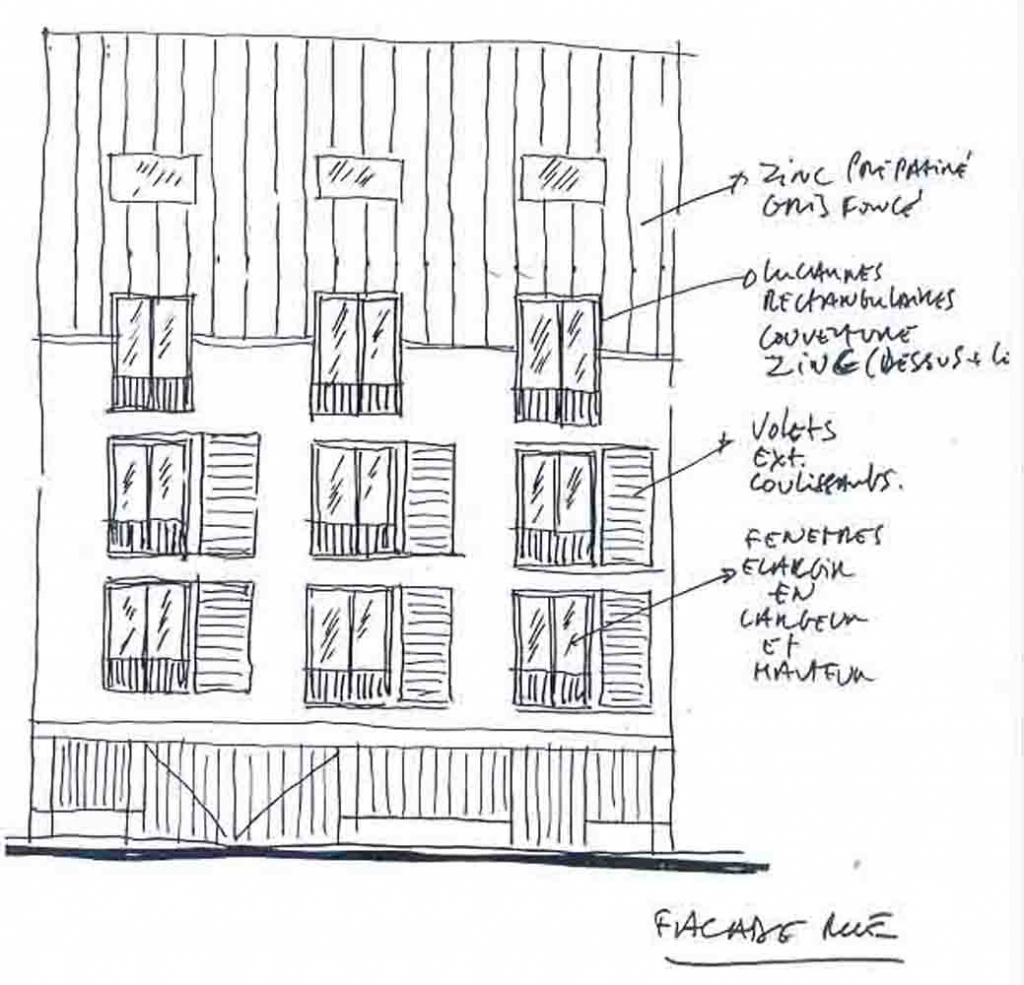 ZINC PRÉPATINÉ
GRIS FONCÉ
LUCARNES
RECTANGULAIRES
COUVERTURE
ZINC (DESSUS +
VOLETS
EXT.
COULISSANTS.
FENETRES
ELARGIR
EN
LARGEUR
ET
HAUTEUR
FACADE RUE